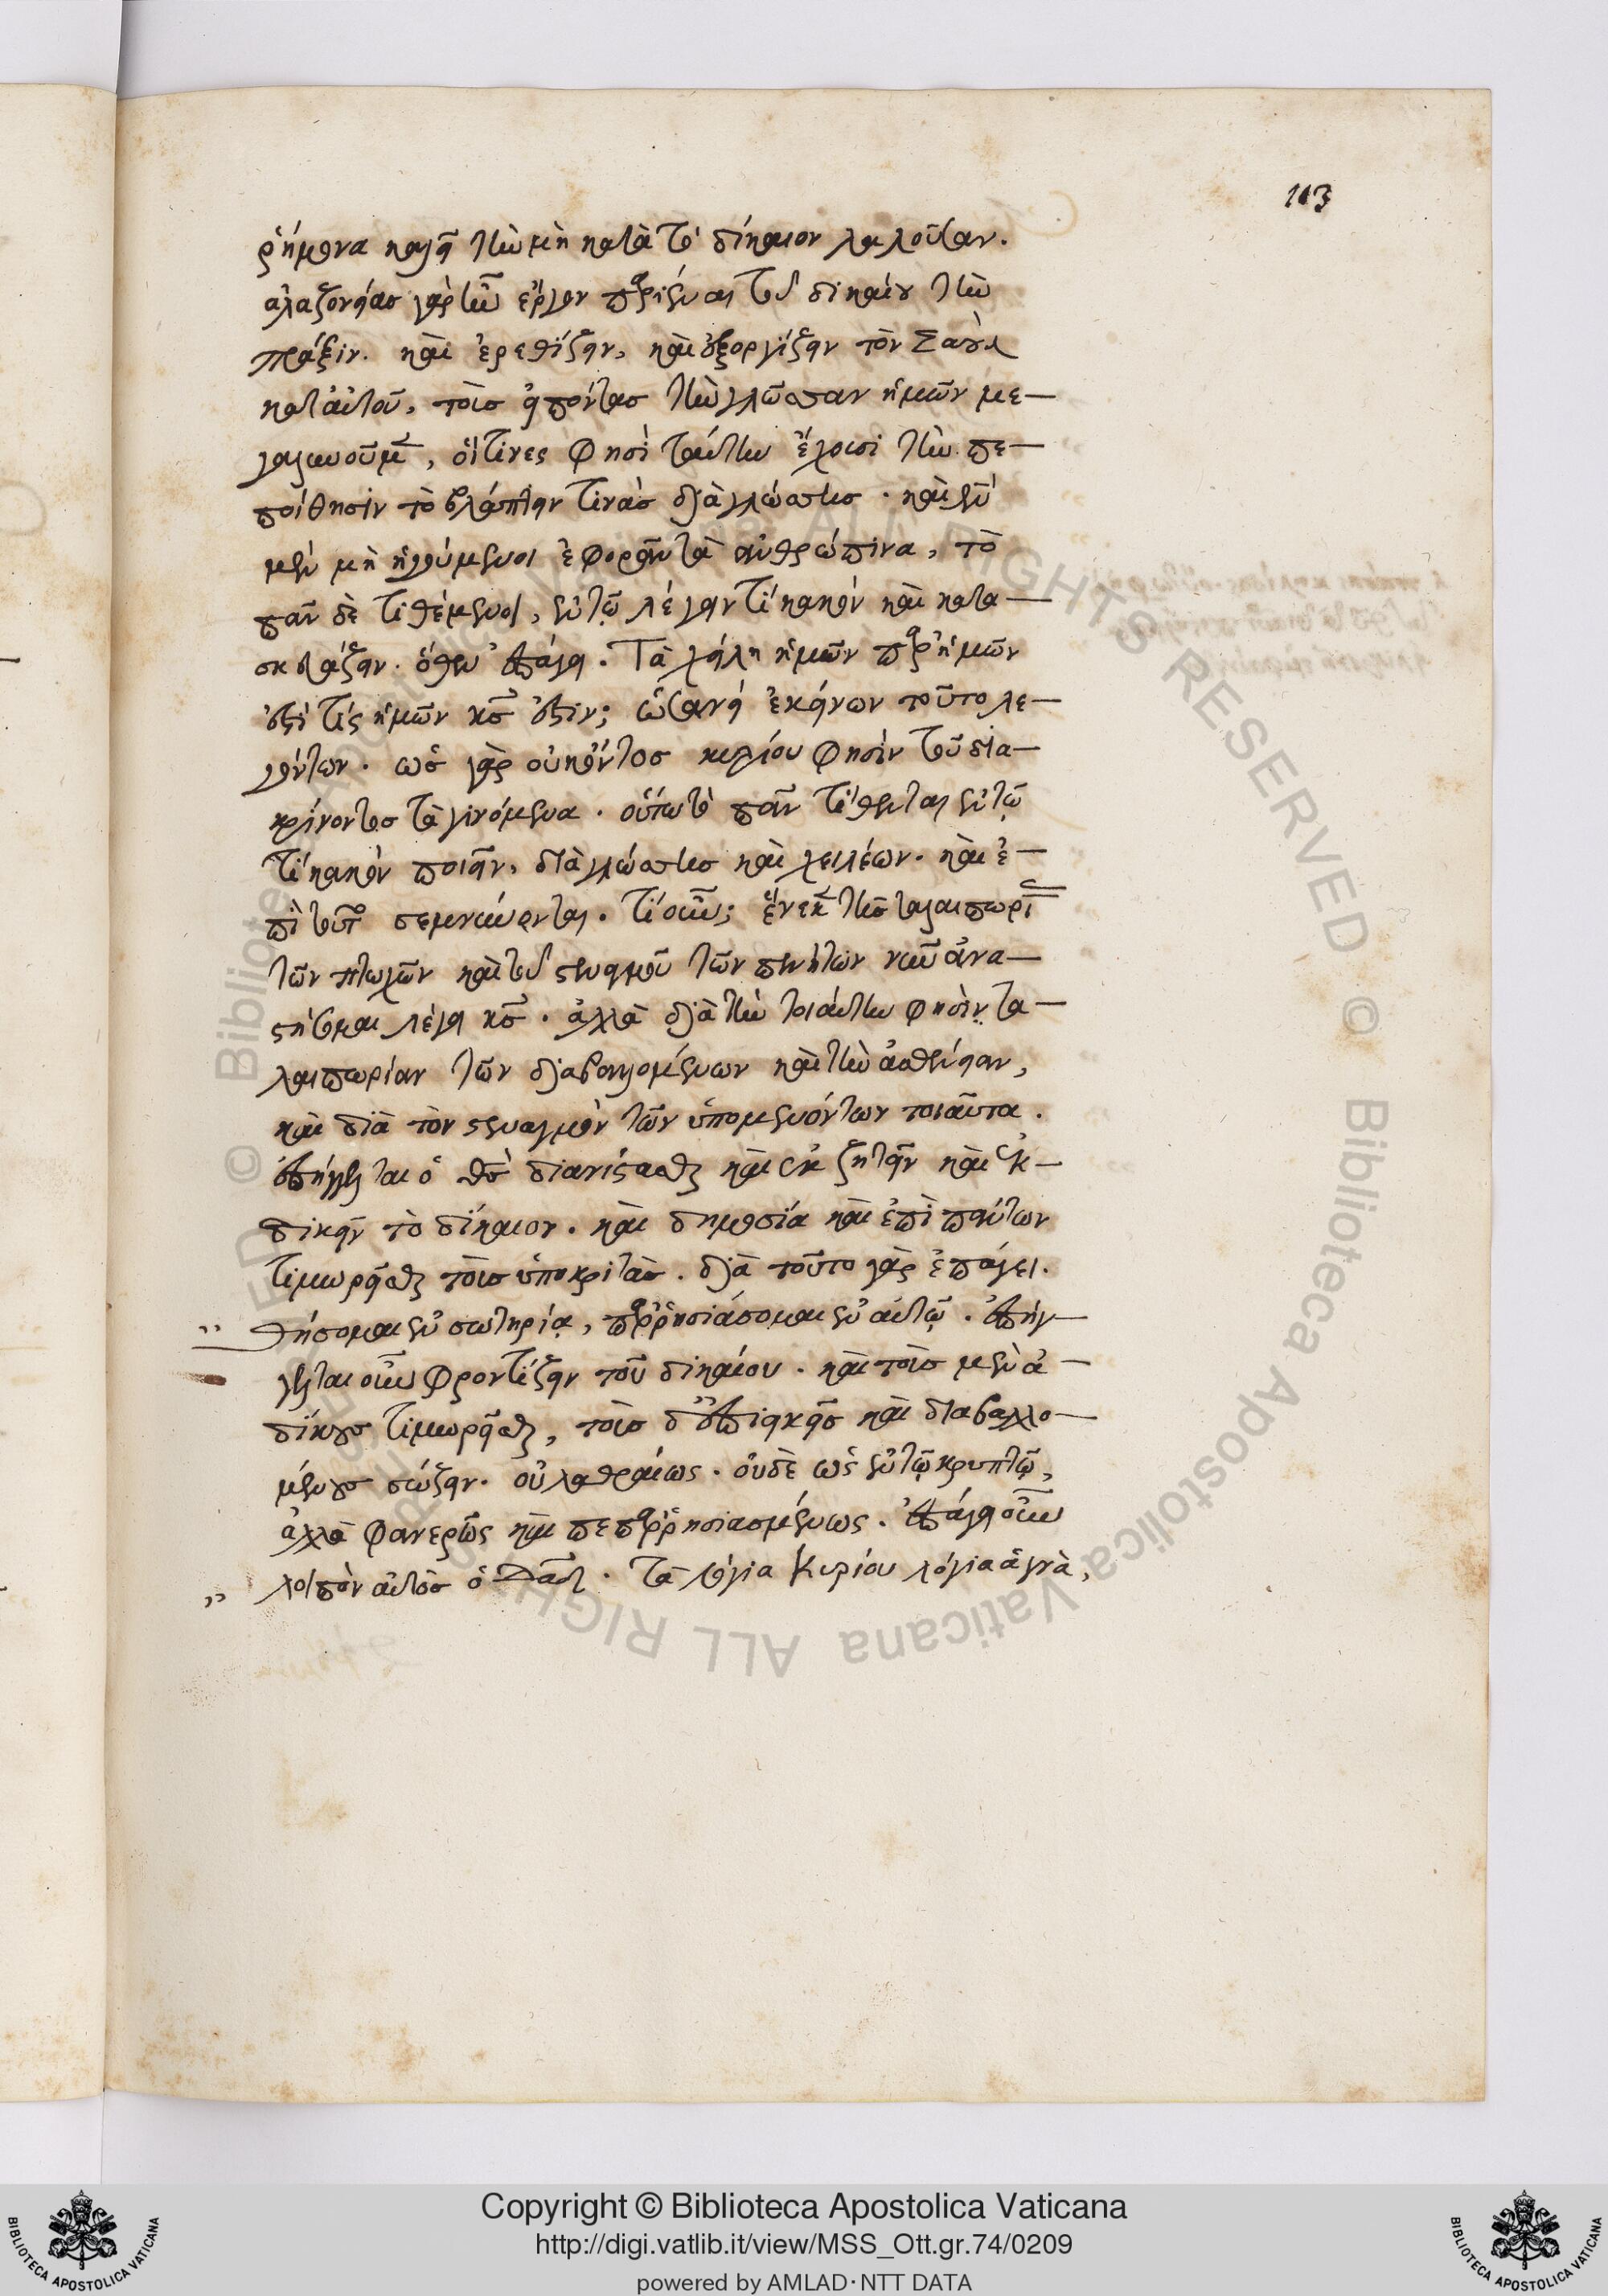 113
ῥήμονα καλεῖ τὴν μὴ κατὰ τὸ δίκαιον λαλοῦσαν.
ἀλαζονείας γὰρ ἦν ἔργον παριέναι τοῦ δικαίου τὴν
πρᾶξιν. καὶ ἐρεθίζειν, καὶ ἐξοργίζειν τὸν Σαοὺλ
κατ' αὐτοῦ, τοὺς εἰπόντας τὴν γλῶσσαν ἡμῶν με-
γαλυνοῦμεν, οἵτινες φησὶ ταύτην ἔχουσι τὴν πε-
ποίθησιν τὸ βλάπτειν τινὰς διὰ γλώσσης. καὶ Θεὸν
μὲν μὴ ἡγούμενοι ἐφορᾶν τὰ ἀνθρώπινα, τὸ
πᾶν δὲ τιθέμενοι, ἐν τῷ λέγειν τί κακὸν καὶ κατα-
σκευάζειν. ὅθεν ἐπάγει. Τὰ χείλη ἡμῶν παρ' ἡμῶν
ἐστί τίς ἡμῶν κς ἐστιν; ὡσανεὶ ἐκείνων τοῦτο λε-
γόντων. ὡς γὰρ οὐκ ὄντος κυρίου φησὶν τοῦ δια-
κρίνοντος τὰ γινόμενα. οὕτω τὸ πᾶν τίθενται ἐν τῷ
τί κακὸν ποιεῖν, διὰ γλώσσης καὶ χειλέων. καὶ ἐ-
πὶ τοῦτο σεμνύνονται. τί οὖν; ἕνεκεν τῆς ταλαιπωρίας
τῶν πτωχῶν καὶ τοῦ στεναγμοῦ τῶν πενήτων νῦν ἀνα-
στήσομαι λέγει κς. ἀλλὰ διὰ τὴν τοιαύτην φησὶν τα-
λαιπωρίαν τῶν διαβαλλομένων καὶ τὴν ἀσθένειαν,
καὶ διὰ τὸν στεναγμὸν τῶν ὑπομενόντων τοιαῦτα.
ἐπήγγελται ὁ θς διανίστασθαι καὶ ἐκζητεῖν καὶ ἐκ-
δικεῖν τὸ δίκαιον. καὶ δημοσία καὶ ἐπὶ πάντων
τιμωρεῖσθαι τοὺς ὑποκριτάς. διὰ τοῦτο γὰρ ἐπάγει.
" θήσομαι ἐν σωτηρίᾳ, παρρησιάσομαι ἐν αὐτῷ. ἐπήγ-
γελται οὖν φροντίζειν τοῦ δικαίου. καὶ τοὺς μὲν ἀ-
δίκους τιμωρεῖσθαι, τοὺς δ' ἐπιεικεῖς καὶ διαβαλλο-
μένους σώζειν. οὐ λαθραίως. οὐδὲ ὡς ἐν τῷ κρυπτῷ,
ἀλλὰ φανερῶς καὶ πεπαρρησιασμένως. ἐπάγει οὖν
" λοιπὸν αὐτὸς ὁ Δαδ. Τὰ λόγια Κυρίου λόγια ἁγνὰ,
Copyright © Biblioteca Apostolica Vaticana
http://digi.vatlib.it/view/MSS_Ott.gr.74/0209
powered by AMLAD·NTT DATA